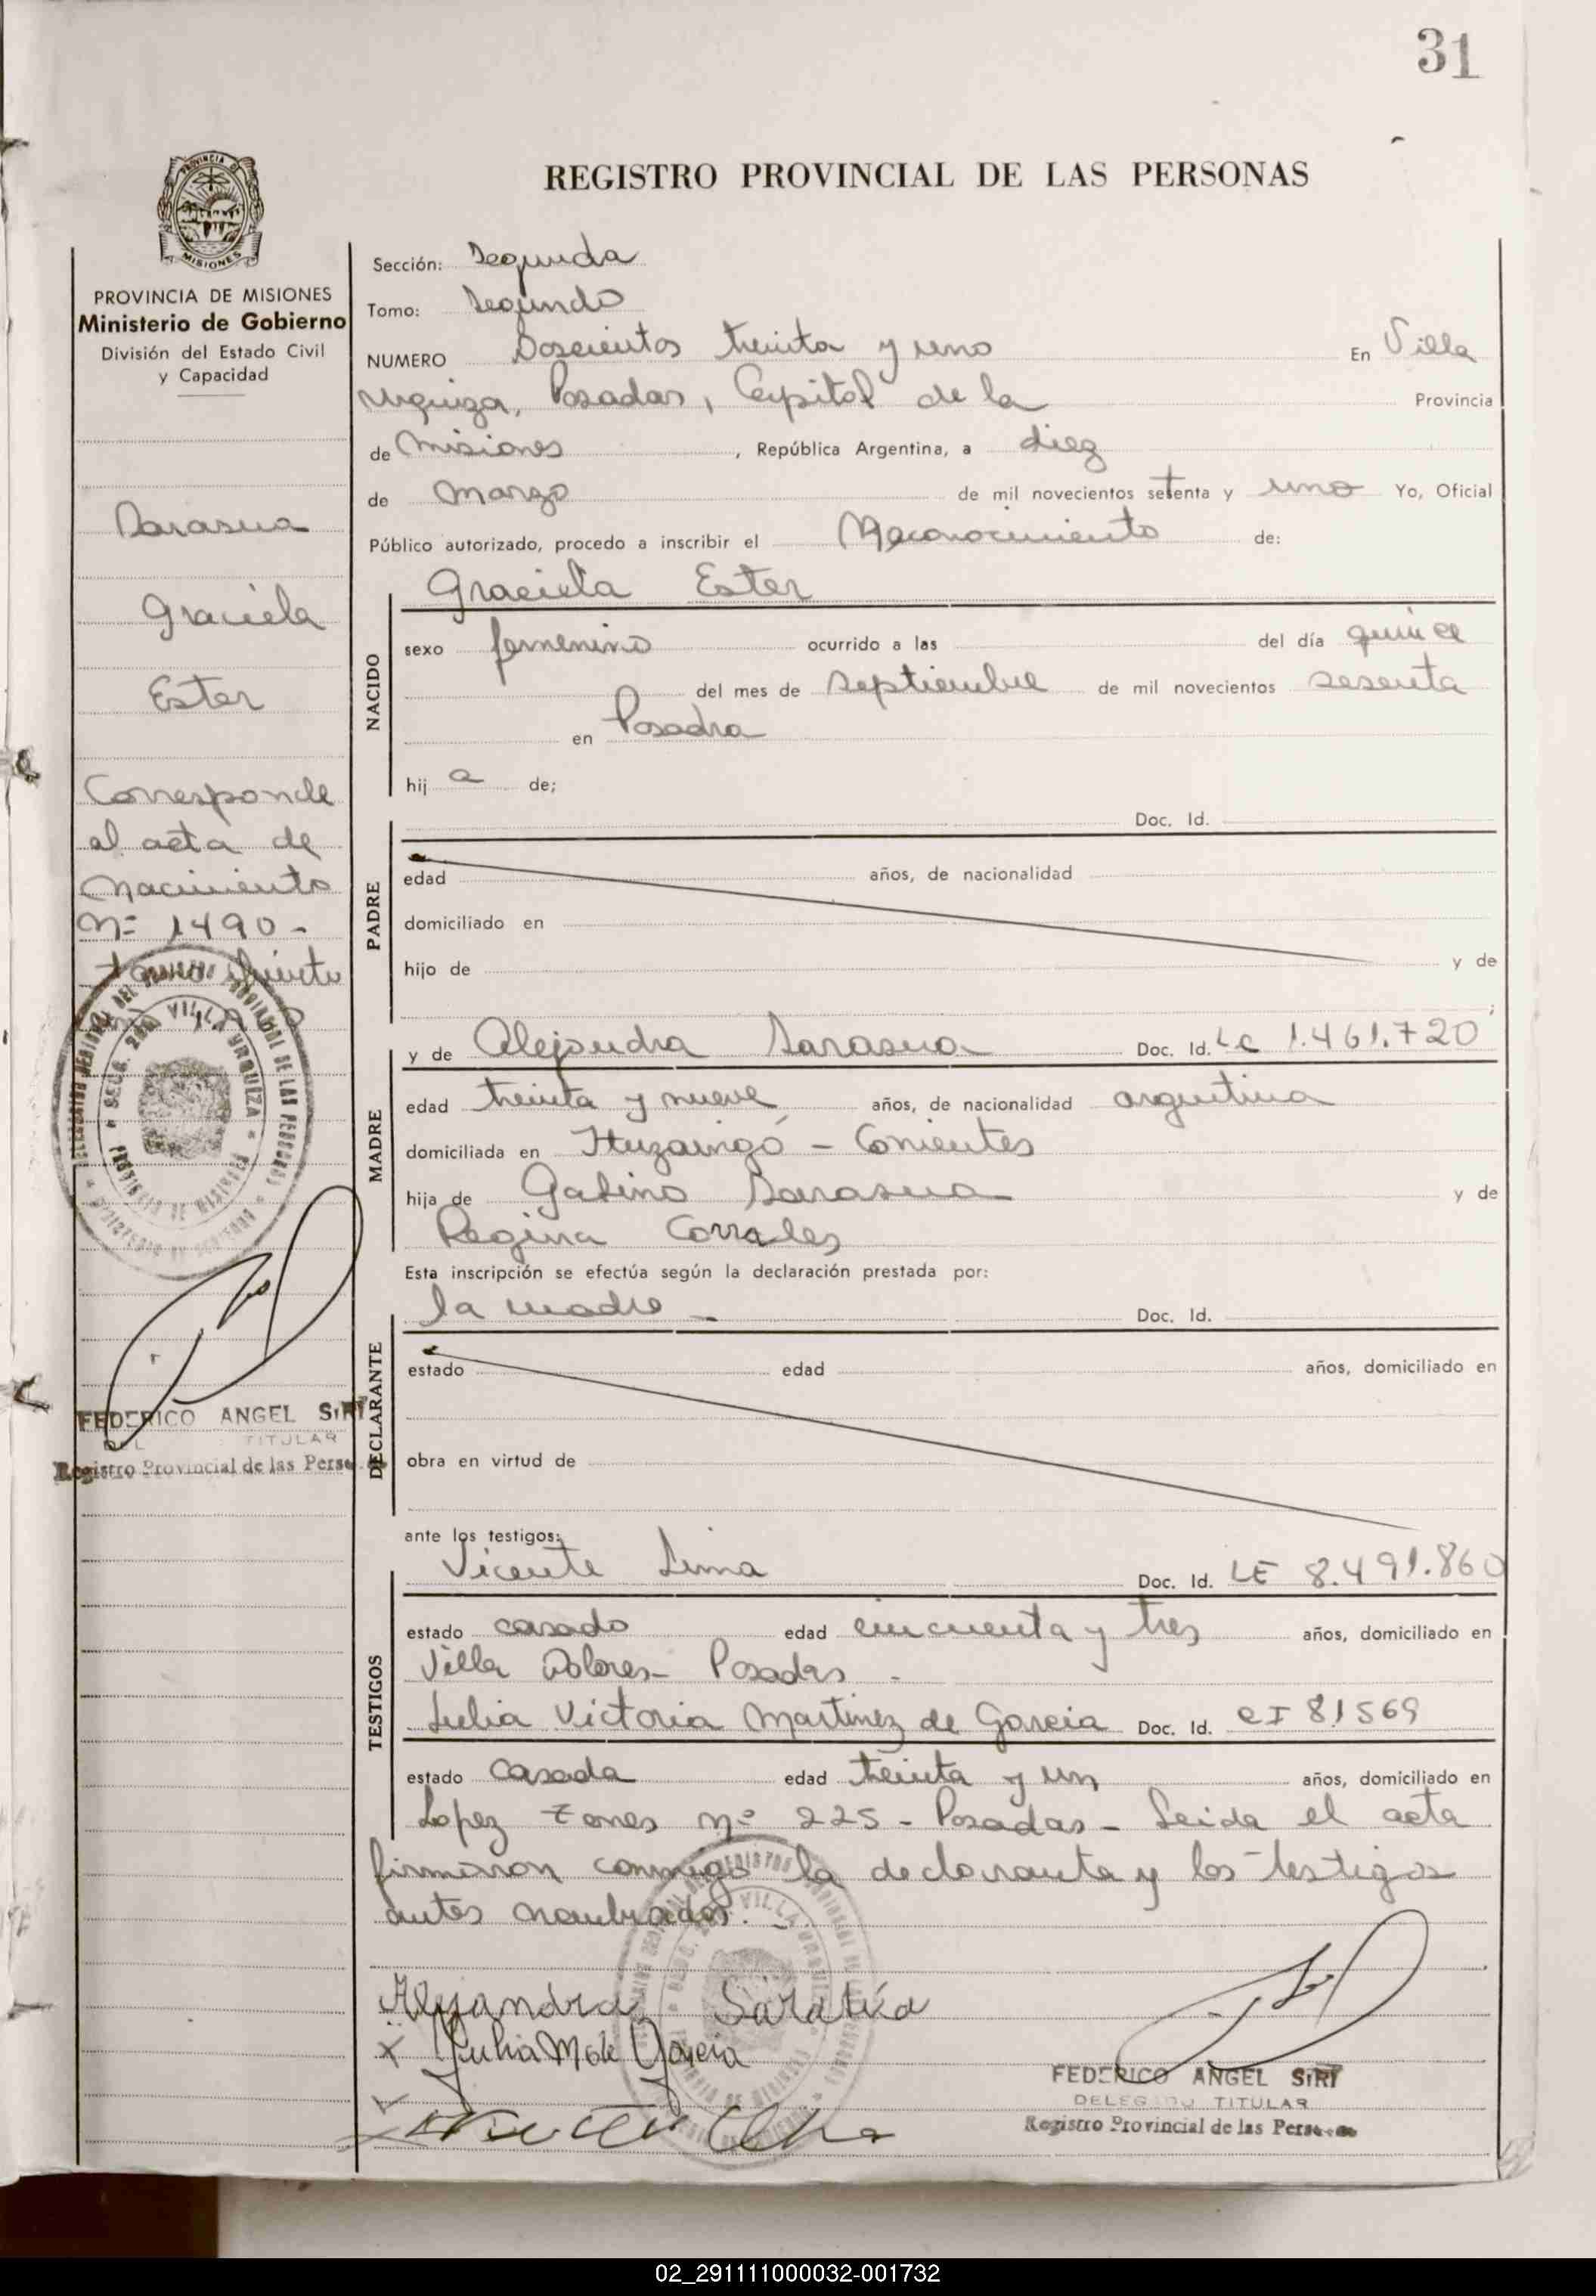 31
REGISTRO PROVINCIAL DE LAS PERSONAS
PROVINCIA DE MISIONES
Ministerio de Gobierno
División del Estado Civil
y Capacidad
Sarasua
Graciela
Ester
Corresponde
al acta de
Nacimiento
Nº 1490-
tomo
FEDERICO ANGEL SIRI
TITULAR
Registro Provincial de las Perso
Sección: Segunda
Tomo: Segundo
NUMERO Doscientos treinta y uno En Villa
Urquiza, Posadas, Capital de la Provincia
de Misiones, República Argentina, a diez
de Marzo de mil novecientos setenta y uno Yo, Oficial
Público autorizado, procedo a inscribir el Reconocimiento de:
Graciela Ester
NACIDO
sexo femenino ocurrido a las del día quince
del mes de septiembre de mil novecientos sesenta
en Posadas
hij a de;
Doc. Id.
PADRE
edad años, de nacionalidad
domiciliado en
hijo de y de
y de Alejandra Sarasua Doc. Id. LC 1.461.720
MADRE
edad treinta y nueve años, de nacionalidad argentina
domiciliada en Ituzaingó - Corrientes
hija de Gabino Sarasua y de
Regina Corrales
Esta inscripción se efectúa según la declaración prestada por:
la madre - Doc. Id.
DECLARANTE
estado edad años, domiciliado en
obra en virtud de
ante los testigos:
Vicente Lima Doc. Id. LE 8.491.860
TESTIGOS
estado casado edad cincuenta y tres años, domiciliado en
Villa Dolores- Posadas -
Julia Victoria Martinez de Garcia Doc. Id. CI 81569
estado casada edad treinta y un años, domiciliado en
Lopez Torres Nº 225 - Posadas - Leida el acta
firmaron conmigo la declaranta y los testigos
antes nombrados. -
Alejandra Sarasua
Julia M de Garcia
FEDERICO ANGEL SIRI
DELEGADO TITULAR
Registro Provincial de las Personas
02_291111000032-001732